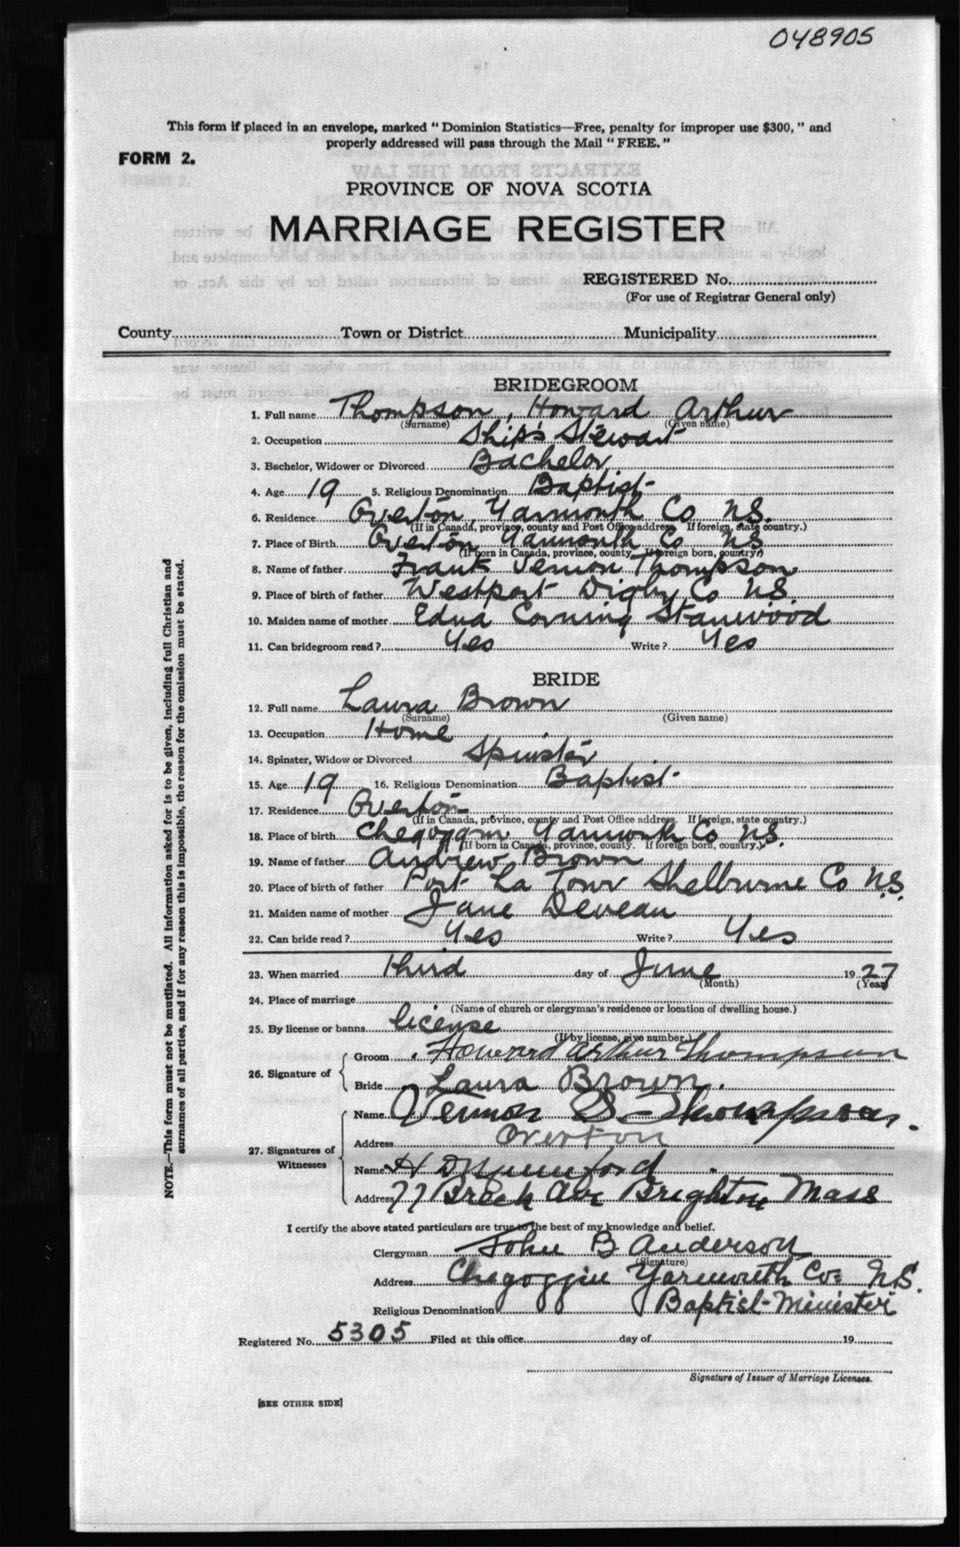 048905
This form if placed in an envelope, marked "Dominion Statistics—Free, penalty for improper use $300," and
properly addressed will pass through the Mail "FREE."
FORM 2.
PROVINCE OF NOVA SCOTIA
MARRIAGE REGISTER
REGISTERED No.
(For use of Registrar General only)
County Town or District Municipality
BRIDEGROOM
1. Full name Thompson, Howard Arthur
(Surname) (Given name)
2. Occupation Ship's Stewart
3. Bachelor, Widower or Divorced Bachelor
4. Age 19 5. Religious Denomination Baptist
6. Residence Overton, Yarmouth Co N.S.
(If in Canada, province, county and Post Office address. If foreign, state country.)
7. Place of Birth Overton Yarmouth Co NS
(If born in Canada, province, county. If foreign born, country.)
8. Name of father Frank Vernon Thompson
9. Place of birth of father Westport Digby Co N.S.
10. Maiden name of mother Edna Corning Stanwood
11. Can bridegroom read? Yes Write? Yes
BRIDE
12. Full name Laura Brown
(Surname) (Given name)
13. Occupation Home
14. Spinster, Widow or Divorced Spinster
15. Age 19 16. Religious Denomination Baptist
17. Residence Overton
(If in Canada, province, county and Post Office address. If foreign, state country.)
18. Place of birth Chegoggin Yarmouth Co N.S.
(If born in Canada, province, county. If foreign born, country.)
19. Name of father Andrew Brown
20. Place of birth of father Port La Tour Shelburne Co N.S.
21. Maiden name of mother Jane Deveau
22. Can bride read? Yes Write? Yes
23. When married third day of June 1927
(Month) (Year)
24. Place of marriage
(Name of church or clergyman's residence or location of dwelling house.)
25. By license or banns license
(If by license, give number.)
26. Signature of Groom Howard Arthur Thompson
Bride Laura Brown.
27. Signatures of Witnesses Name Vernon S. Thompson.
Address Overton
Name H D Mumford
Address 77 Breck Ave Brighton Mass
I certify the above stated particulars are true to the best of my knowledge and belief.
Clergyman John B Anderson
(Signature)
Address Chegoggin Yarmouth Co. N.S.
Religious Denomination Baptist-Minister
Registered No. 5305 Filed at this office day of 19
Signature of Issuer of Marriage Licenses.
[SEE OTHER SIDE]
NOTE.—This form must not be mutilated. All information asked for is to be given, including full Christian and
surnames of all parties, and if for any reason this is impossible, the reason for the omission must be stated.